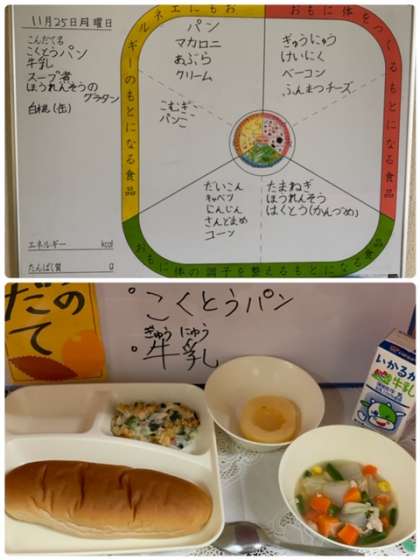 11月25日月曜日
こんだて名
こくとうパン
牛乳
スープ煮
ほうれんそうの
グラタン
白桃(缶)
エネルギー kcal
たんぱく質 g
ギーのもとになる食品
おもに体をつくるもとになる食品
おもに体の調子を整えるもとになる食品
パン
マカロニ
あぶら
クリーム
こむぎこ
パンこ
ぎゅうにゅう
けいにく
ベーコン
ふんまつチーズ
だいこん
キャベツ
にんじん
さんどまめ
コーン
たまねぎ
ほうれんそう
はくとう(かんづめ)
の
だ
て
こくとうパン
ぎゅうにゅう
牛乳
いかるが
牛乳